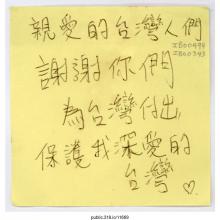 親愛的台灣人們
IB00494
IB00343
謝謝你們
為台灣付出
保護我深愛的
台灣♡.
public.318.io/11669